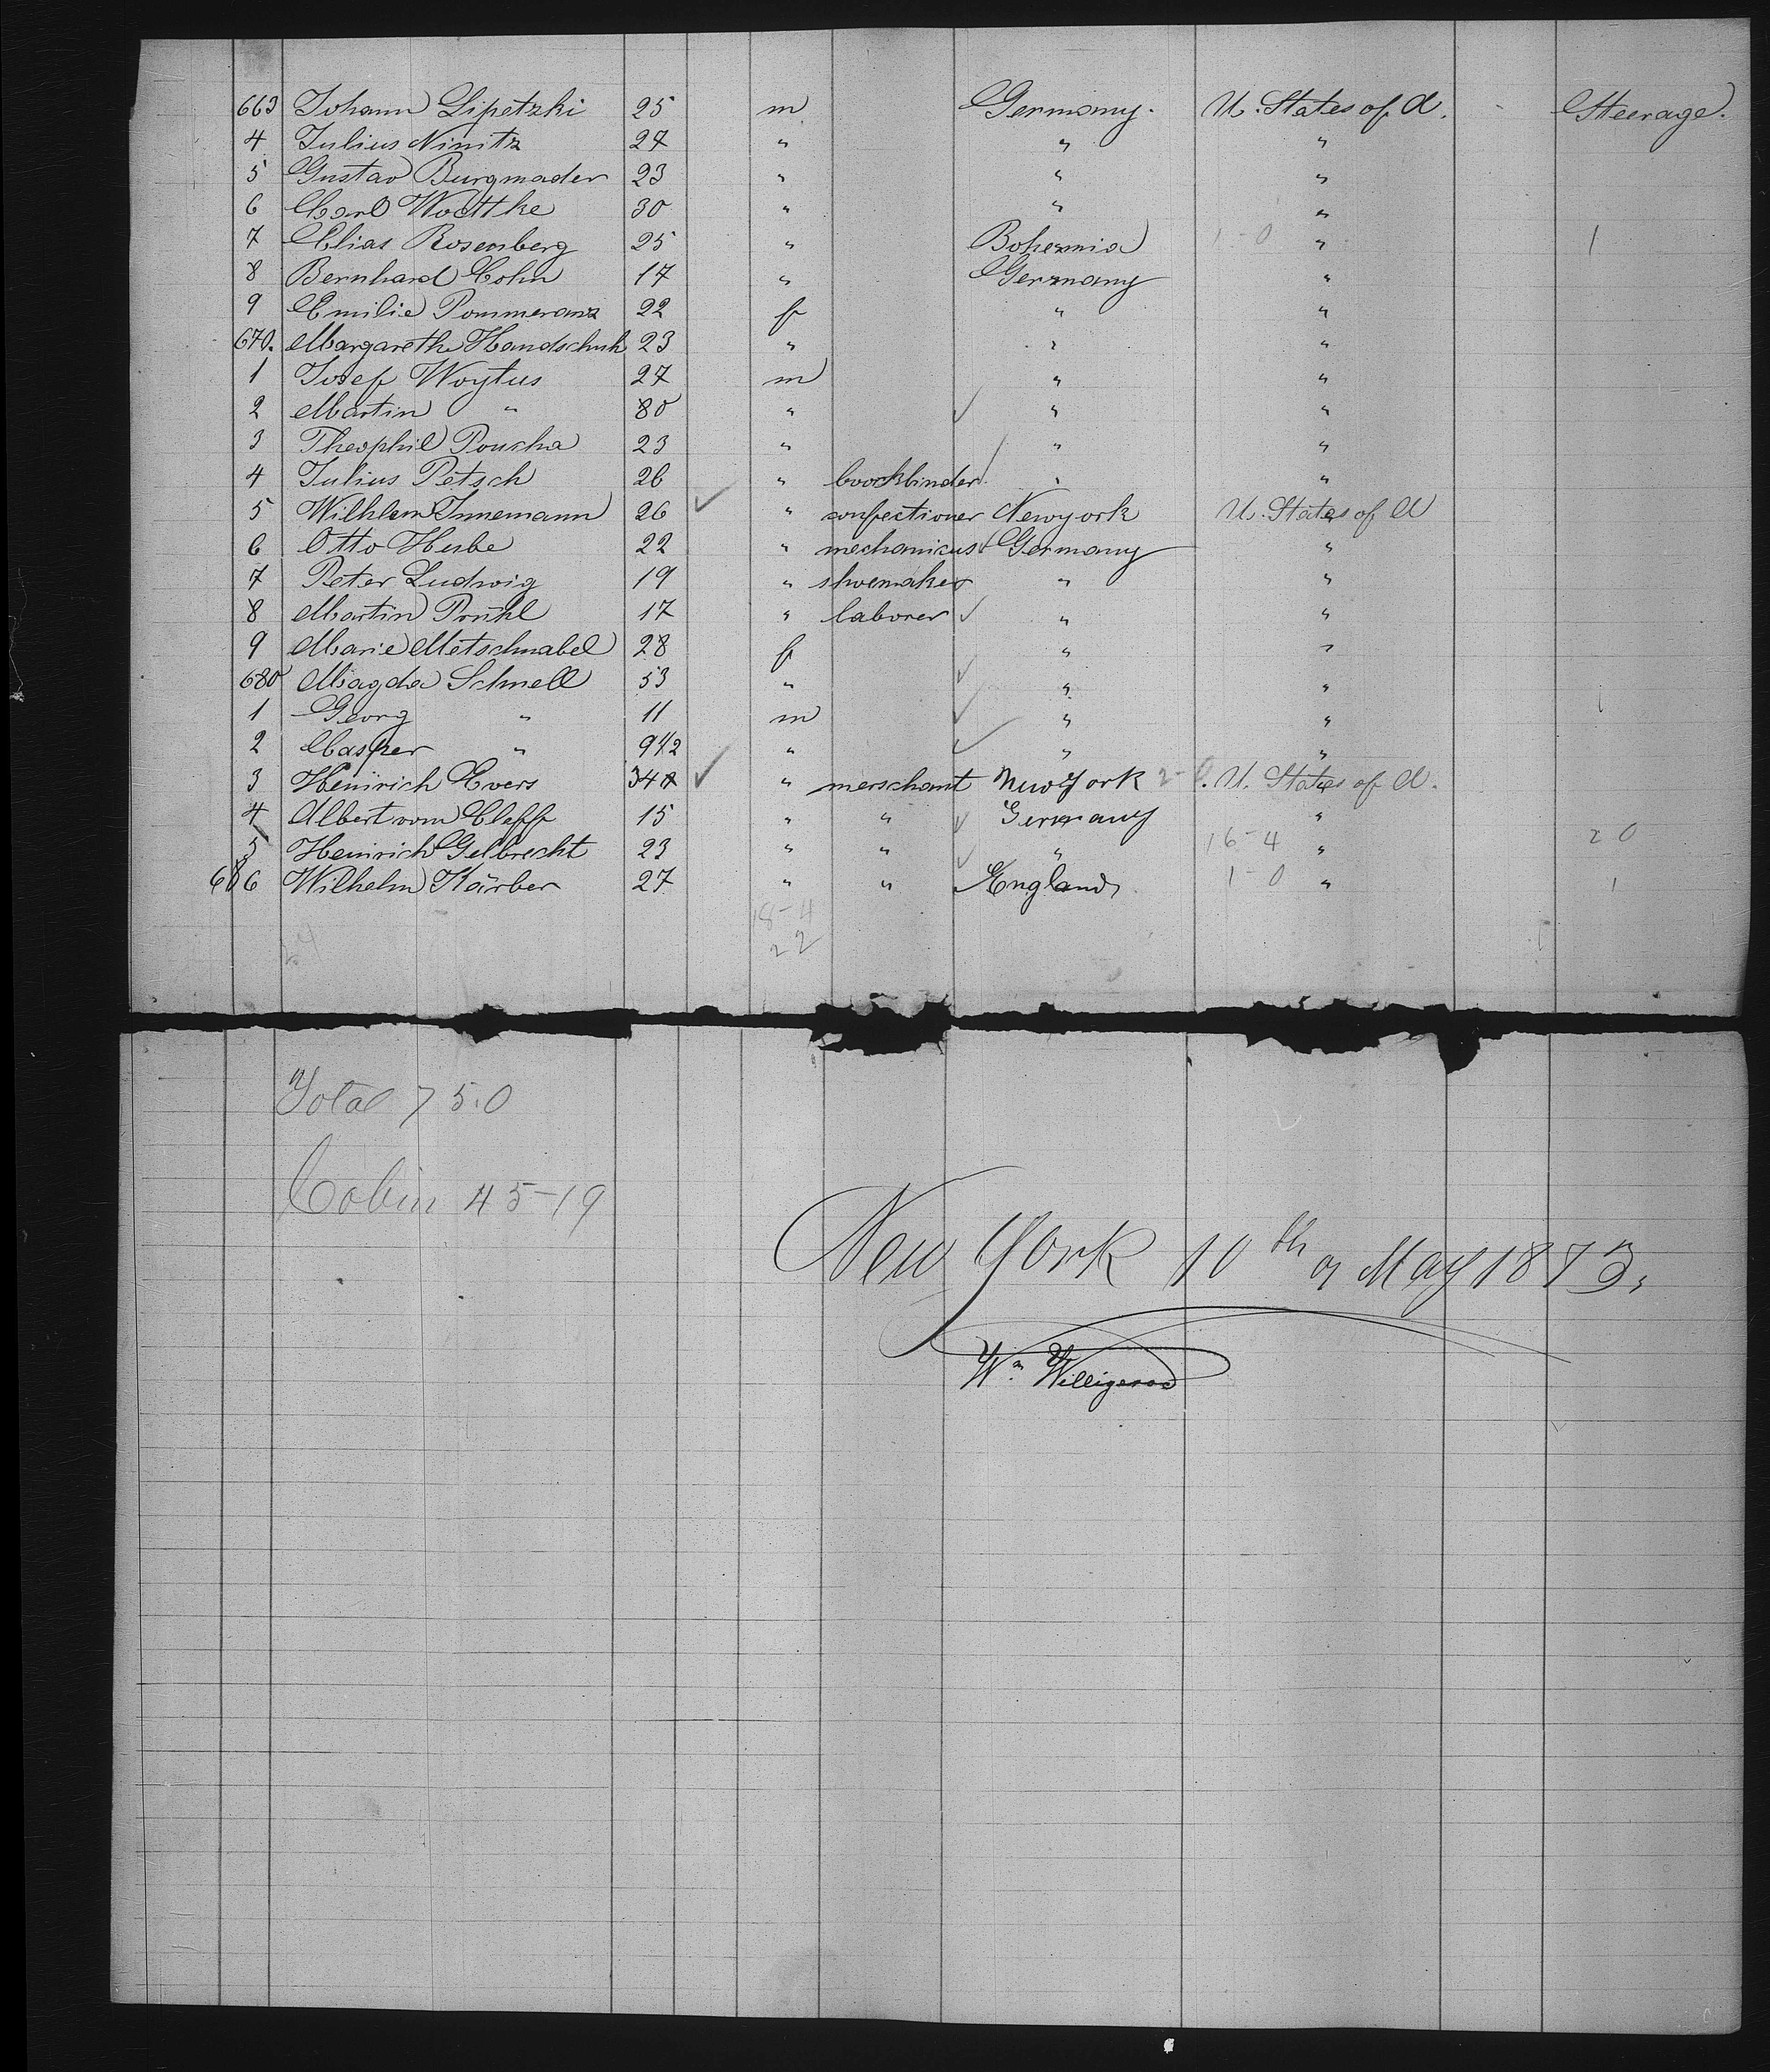 663 Johann Lipetzki 25 m Germany. U. States of A. Steerage.
4 Julius Nimitz 27 " " "
5 Gustav Burgmader 23 " " "
6 Carl Wottke 30 " " "
7 Elias Rosenberg 25 " Bohemia 1-0 " 1
8 Bernhard Cohn 17 " Germany "
9 Emilie Pommeranz 22 f " "
670. Margarethe Handschuh 23 " " "
1 Josef Woytus 27 m " "
2 Martin " 80 " " "
3 Theophil Poucha 23 " " "
4 Julius Petsch 26 " boockbinder " "
5 Wilhlem Innemann 26 " confectioner Newyork U. States of A
6 Otto Hesbe 22 " mechanicus Germany "
7 Peter Ludwig 19 " shoemaker " "
8 Martin Prühl 17 " laborer " "
9 Marie Metschnabel 28 f " "
680 Magda Schnell 53 " " "
1 Georg " 11 m " "
2 Casper " 9 1/2 " " "
3 Heinrich Evers 34 " merschant New York 2-0. U. States of A.
4 Albert vom Cleff 15 " " Germany "
5 Heinrich Gelbrecht 23 " " " 16-4 " 20
686 Wilhelm Körber 27 " " England 1-0 " 1
18-4
24 22
Total 750
Cabin 45-19
New York 10th of May 1873,
Wm. Willigerod